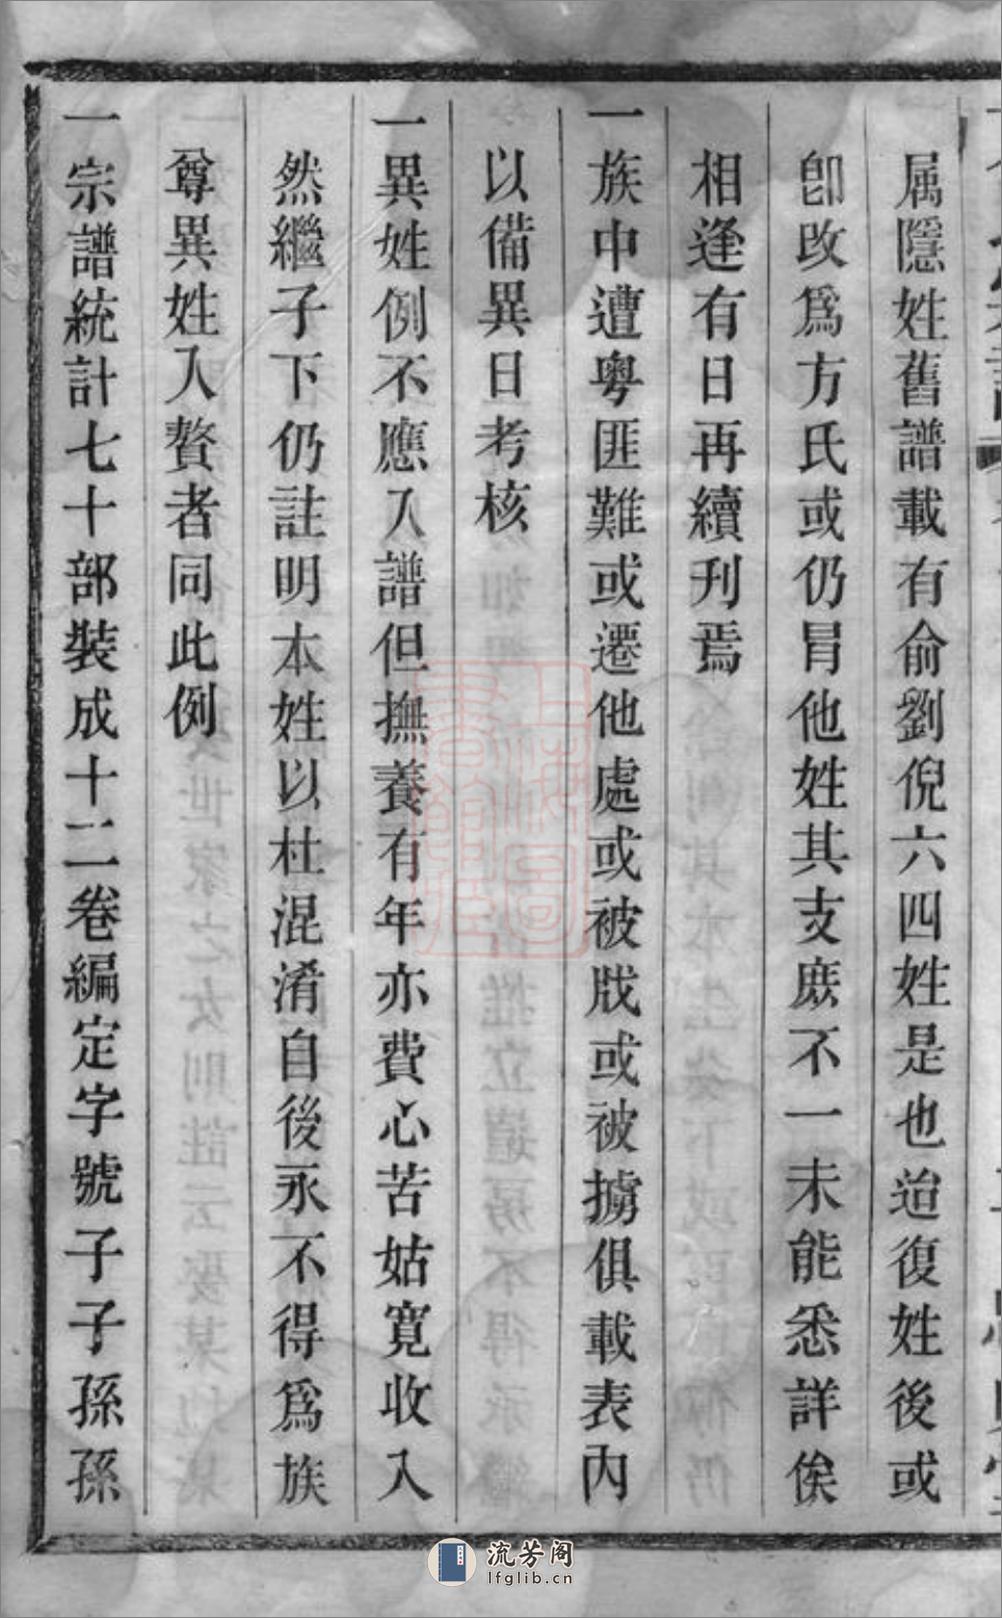 属隱姓舊譜載有俞劉倪六四姓是也迨復姓後或
卽改爲方氏或仍冐他姓其支庻不一未能悉詳俟
相逢有日再續刋焉
一族中遭粤匪難或遷他處或被戕或被擄俱載表內
以備異日考核
一異姓例不應入譜但撫養有年亦費心苦姑寛收入
然繼子下仍註明本姓以杜混淆自後永不得爲族
尊異姓入贅者同此例
一宗譜統計七十部裝成十二卷編定字號子子孫孫
流芳阁
lfglib.cn